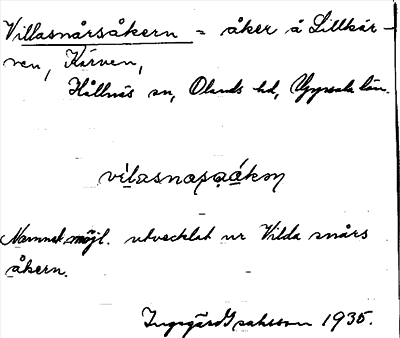 Villasnårsåkern = åker å Lillkär-
ven, Kärven,
Hållnäs sn, Olands hd, Uppsala län.
Namnet möjl. utvecklat ur Vilda snårs
åkern.
Ingegärd Isaksson 1935.